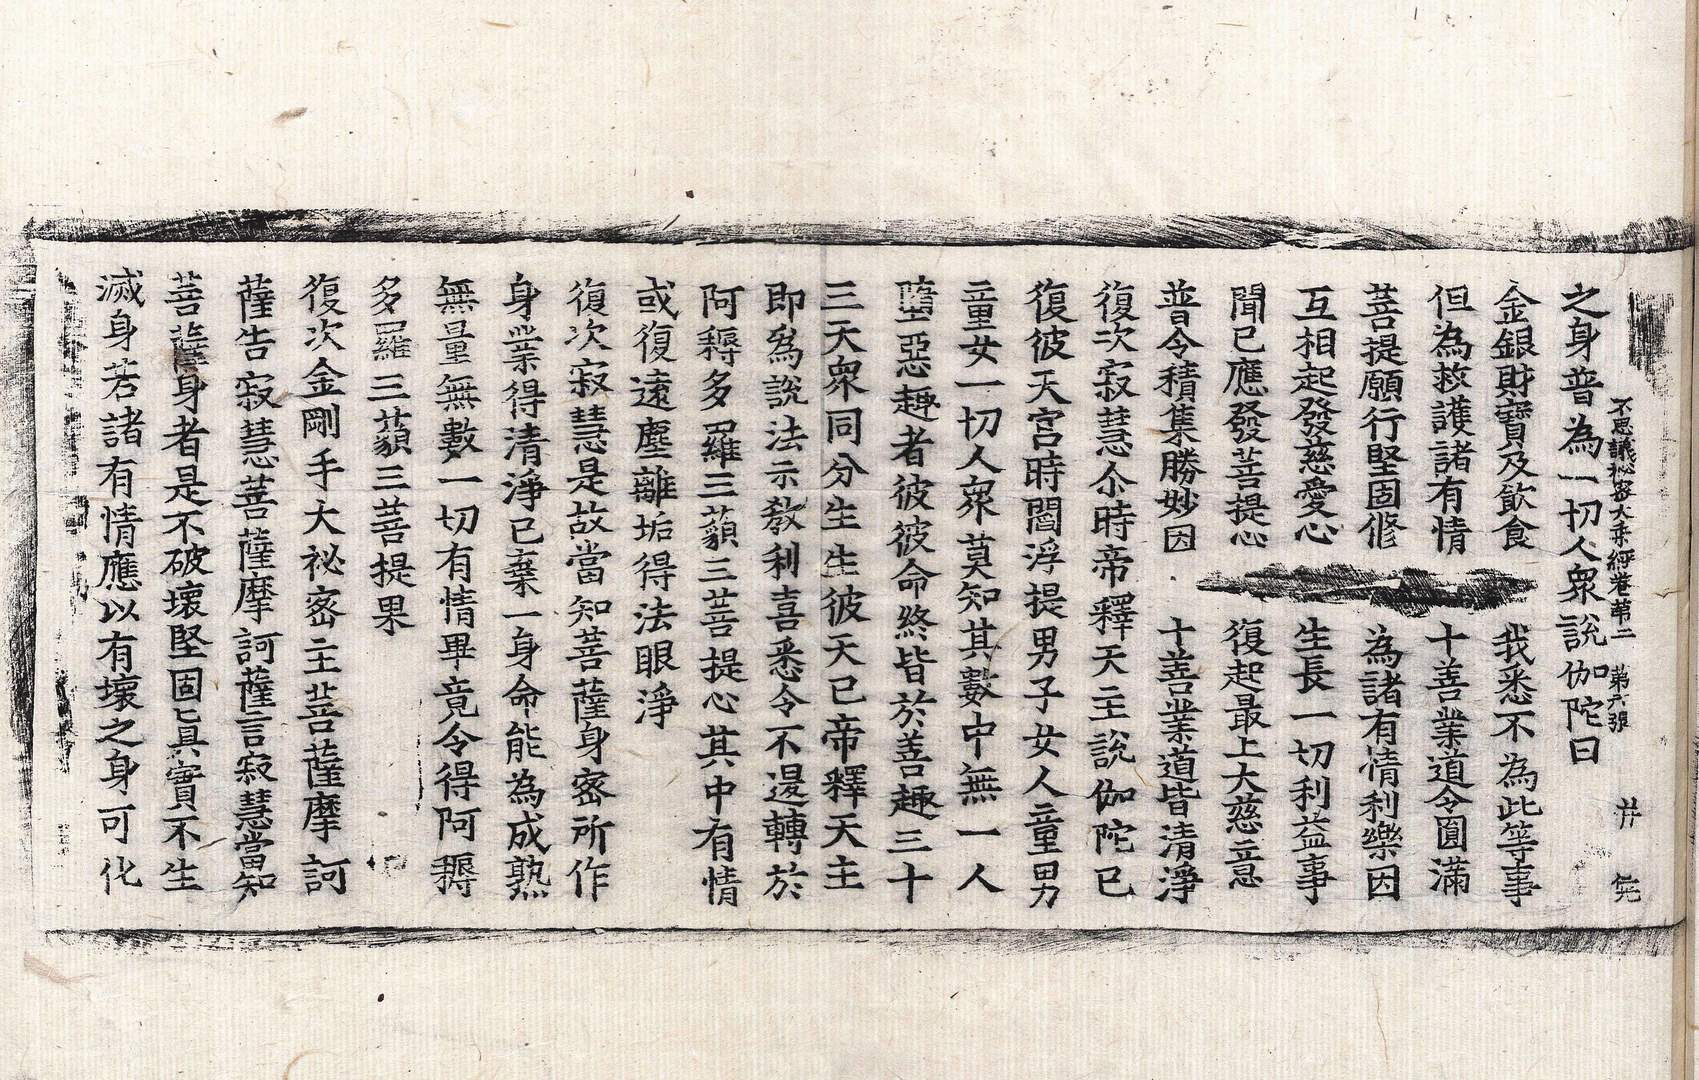 不思議祕密大乘經卷第二 第六張 廿
之身普為一切人衆說伽陀曰
金銀財寶及飲食 我悉不為此等事
但為救護諸有情 十善業道令圓滿
菩提願行堅固修 為諸有情利樂因
互相起發慈愛心 生長一切利益事
聞已應發菩提心 復起最上大慈意
普令積集勝妙因 十善業道皆清淨
復次寂慧尒時帝釋天主說伽陀已
復彼天宮時閻浮提男子女人童男
童女一切人衆莫知其數中無一人
墮惡趣者彼彼命終皆於善趣三十
三天衆同分生生彼天已帝釋天主
即為說法示教利喜悉令不退轉於
阿耨多羅三藐三菩提心其中有情
或復遠塵離垢得法眼淨
復次寂慧是故當知菩薩身密所作
身業得清淨已棄一身命能為成熟
無量無數一切有情畢竟令得阿耨
多羅三藐三菩提果
復次金剛手大祕密主菩薩摩訶
薩告寂慧菩薩摩訶薩言寂慧當知
菩薩身者是不破壞堅固真實不生
滅身若諸有情應以有壞之身可化